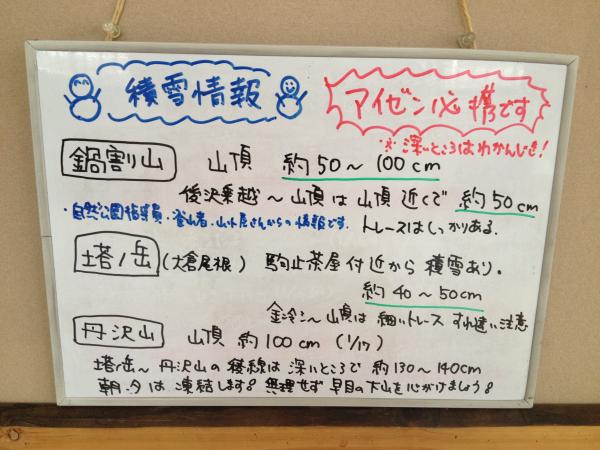 積雪情報
アイゼン必携です
※深いところはわかんじき!
鍋割山 山頂 約50〜100cm
後沢乗越〜山頂は山頂近くで 約50cm
・自然公園指導員・登山者・山小屋さんからの情報です。
トレースはしっかりある.
塔ノ岳 (大倉尾根) 駒止茶屋付近から積雪あり。
約40〜50cm
金冷シ〜山頂は細いトレース すれ違い注意
丹沢山 山頂 約100cm (1/17)
塔ノ岳〜丹沢山の稜線は深いところで約130〜140cm
朝.夕は凍結します!無理せず早目の下山を心がけましょう!